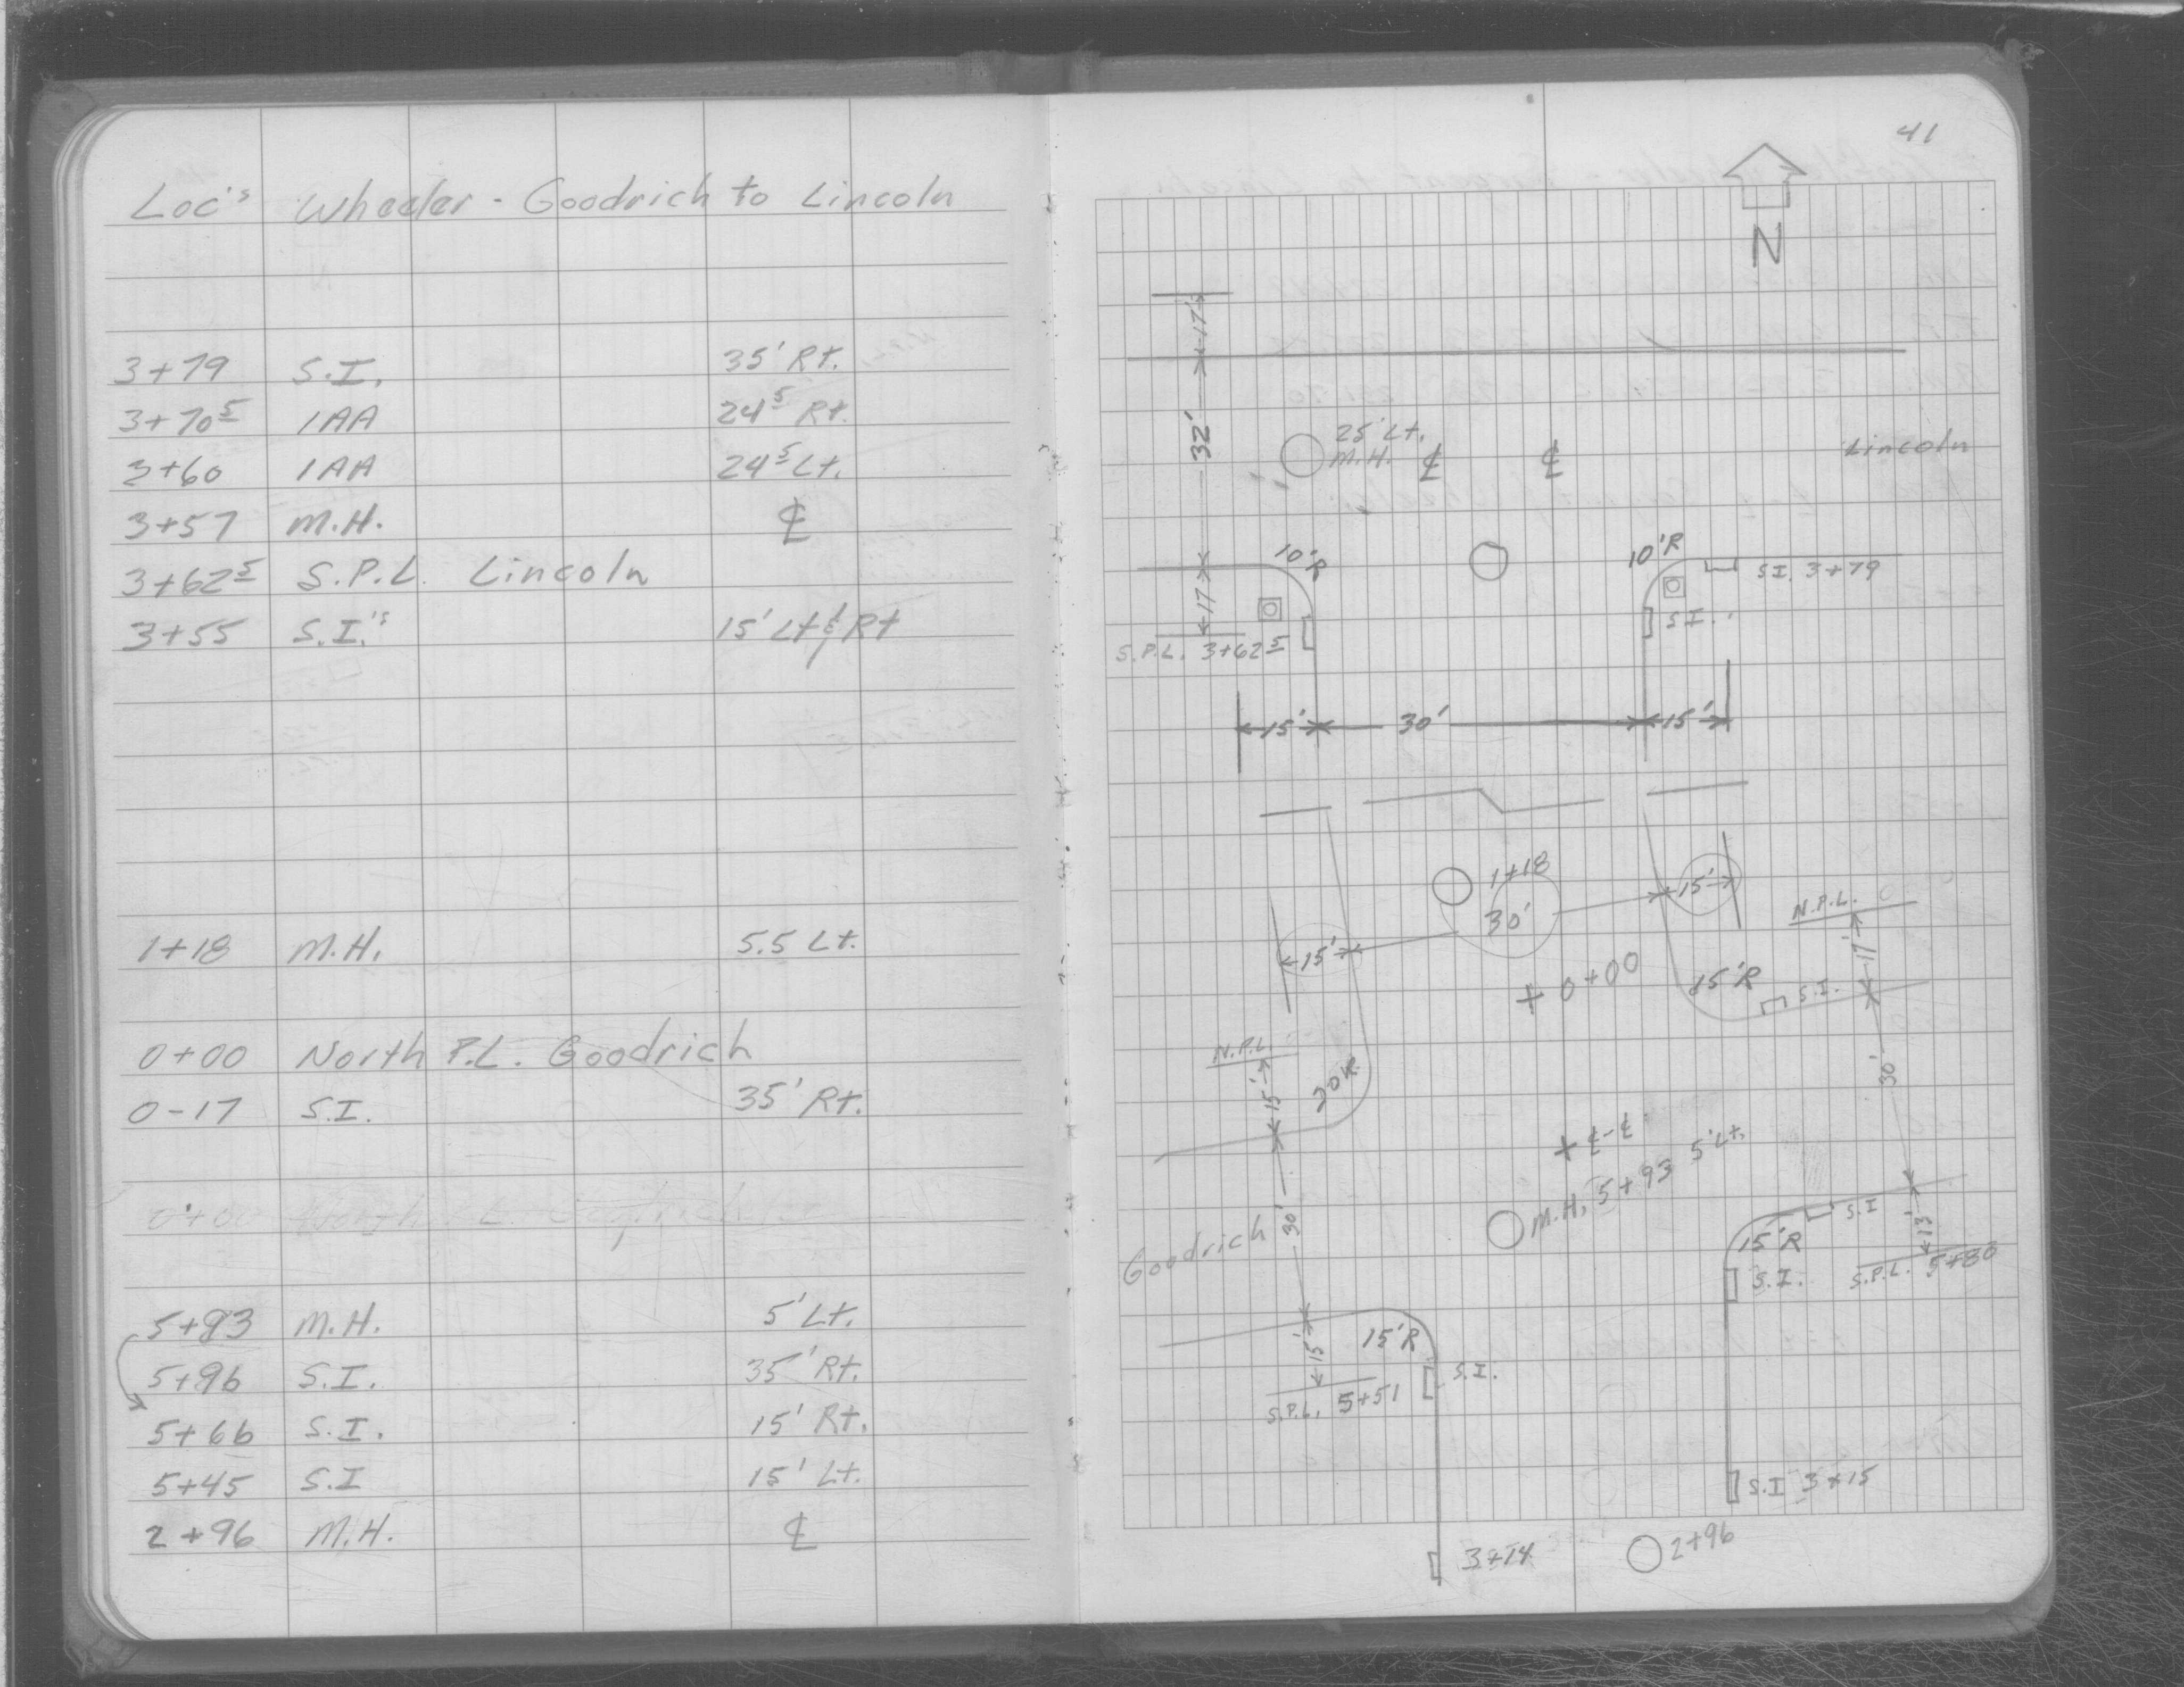 Loc's Wheeler - Goodrich to Lincoln
3+79 S.I. 35' Rt.
3+70⁵ 1AA 24⁵ Rt.
3+60 1AA 24⁵ Lt.
3+57 M.H. ℄
3+62⁵ S.P.L. Lincoln
3+55 S.I.'s 15' Lt & Rt
1+18 M.H. 5.5 Lt.
0+00 North P.L. Goodrich
0-17 S.I. 35' Rt.
5+93 M.H. 5' Lt.
5+96 S.I. 35' Rt.
5+66 S.I. 15' Rt.
5+45 S.I 15' Lt.
2+96 M.H. ℄
41
N
17'
32'
25' Lt.
M.H. ℄ ℄
Lincoln
10'R
10'R
S.I. 3+79
17
S.I.
S.P.L. 3+62⁵
15' 30' 15'
1+18
30'
15'
15'
N.P.L.
11'
0+00
15'R
S.I.
N.P.L
15'
20R
30'
℄-℄
M.H. 5+93 5'Lt.
Goodrich
30'
15'R
S.I
13'
S.I.
S.P.L. 5+80
15'R
15'
S.I.
S.P.L. 5+51
S.I 3+15
3+14
2+96